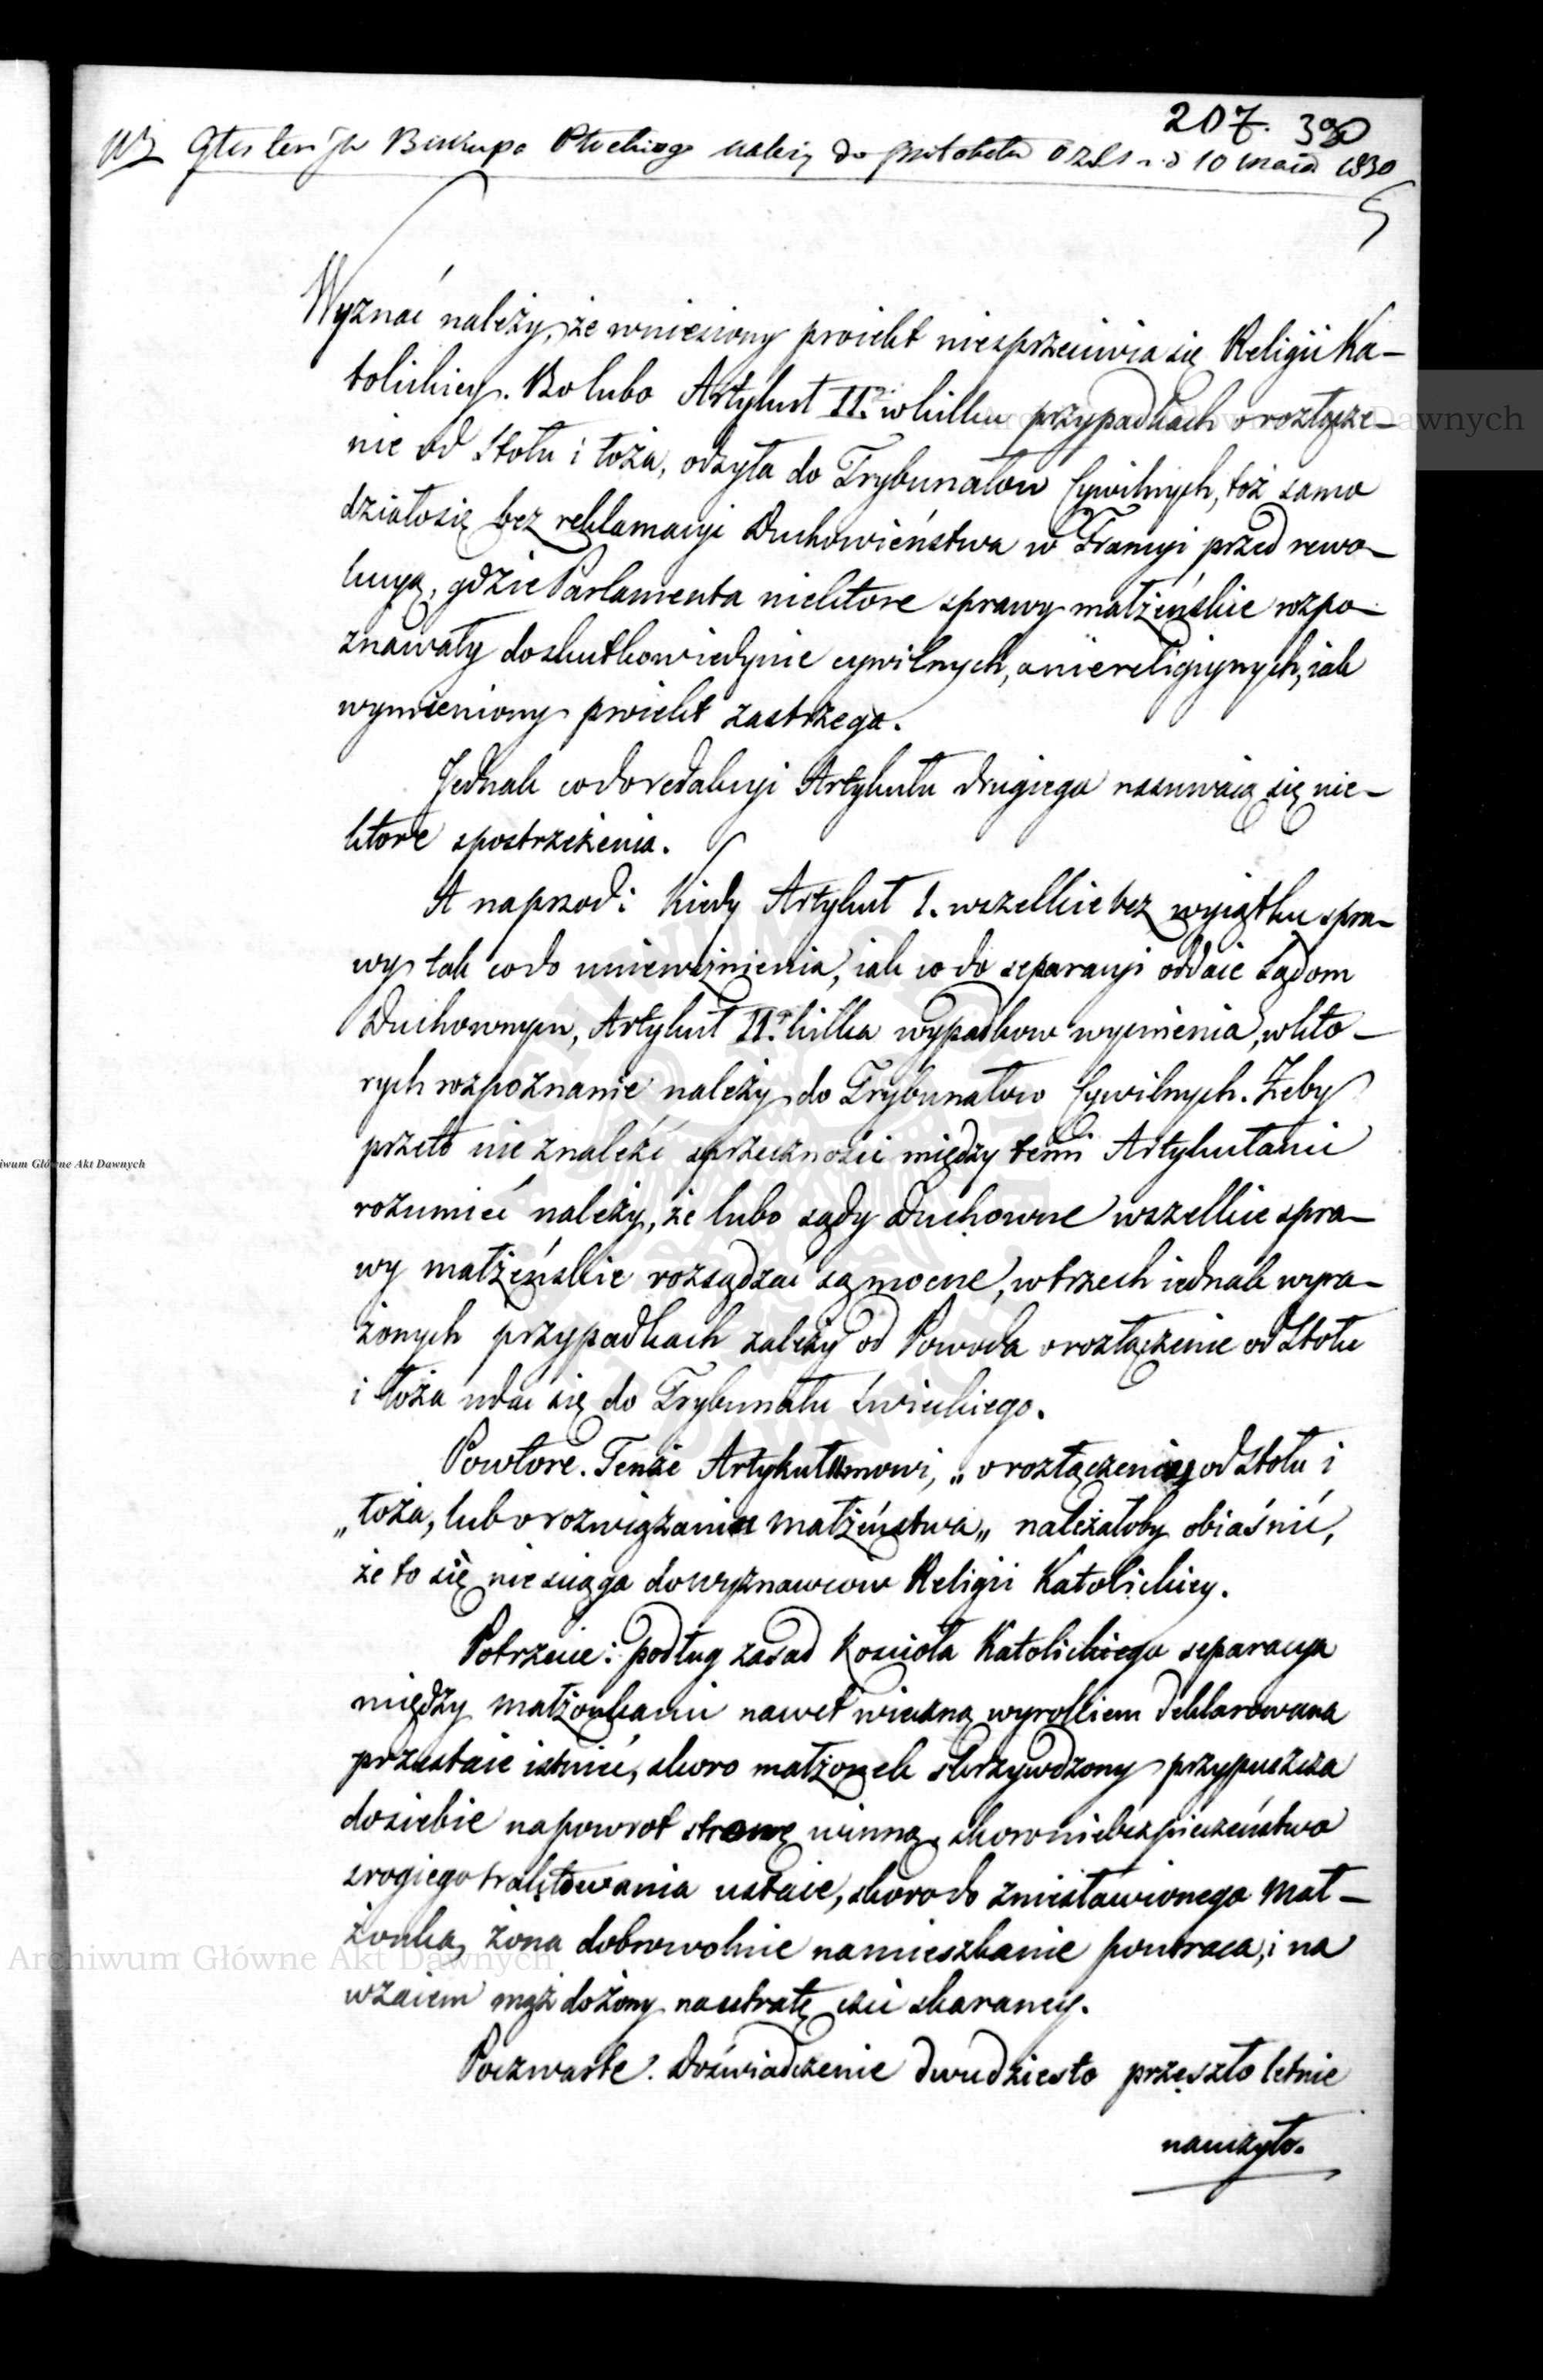 207. 390
Głos Jen JW Biskupa Płockiego należy do protokołu 10 maja 1830
5
Wyznać należy, że wniesiony proiekt niesprzeciwia się Religii Ka-
tolickiey. Bo lubo Artykuł II.gi w kilku przypadkach o rozłącze-
nie od Stołu i łoża, odsyła do Trybunałów Cywilnych, toż samo
działo się bez reklamacyi Duchowieństwa w Francyi przed rewo-
lucyą, gdzie Parlamenta niektore sprawy małżeńskie rozpo-
znawały do skutkow iedynie cywilnych, a niereligiynych, iak
wymieniony proiekt zastrzega.
Jednak co do redakcyi Artykułu drugiego nasuwaią się nie-
ktore spostrzeżenia.
A naprzod: Kiedy Artykuł I. wszelkie bez wyiątku spra-
wy tak co do unieważnienia, iak co do separacyi oddaie Sądom
Duchownym, Artykuł II.gi kilka wypadkow wymienia, w kto-
rych rozpoznanie należy do Trybunałow Cywilnych. Żeby
przeto nie znaleźć sprzeczności między temi Artykułami
rozumieć należy, że lubo sądy duchowne wszelkie spra-
wy małżeńskie rozsądzać są mocne, w trzech iednak wyra-
żonych przypadkach zależy od Powoda o rozłączenie od Stołu
i łoża udać się do Trybunału świeckiego.
Powtore. Tenże Artykuł mowi, „o rozłączenie od Stołu i
„łoża, lub o rozwiązanie małżeństwa„ należałoby obiaśnić,
że to się nie sciąga do wyznawcow Religii Katolickiey.
Potrzecie: podług zasad Kościoła Katolickiego separacya
między małżonkami nawet wieczną wyrokiem deklarowana
przestaie istnieć, skoro małżonek skrzywdzony przypuszcza
do siebie napowrot stronę winną, skoro niebezpieczeństwo
srogiego traktowania ustaie, skoro do zniesławionego mał-
żonka, żona dobrowolnie na mieszkanie powraca, i na
wzaiem mąż do żony na utratę czci skaraney.
Poczwarte. Doświadczenie dwudziesto przeszło letnie
nauczyło.
Archiwum Główne Akt Dawnych